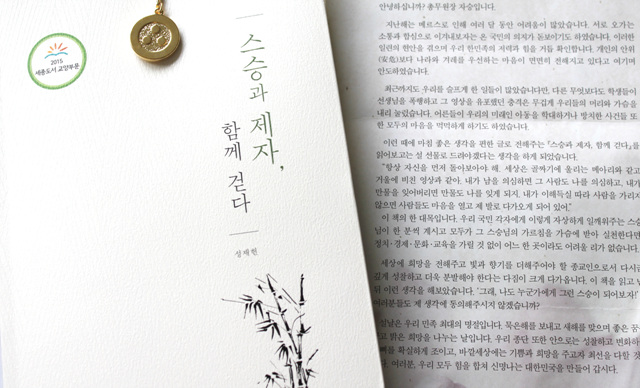 2015
세종도서 교양부문
스승과 제자,
함께 걷다
성제헌
안녕하십니까? 총무원장 자승입니다.
지난해는 메르스로 인해 여러 달 동안 어려움이 많았습니다. 서로 오가는
소통과 합심으로 이겨내보자는 온 국민의 의지가 돋보이기도 하였습니다. 이러한
일련의 현안을 겪으며 우리 한민족의 저력과 힘을 거듭 확인합니다. 개인의 안위
(安危)보다 나라와 겨레를 우선하는 마음이 면면히 전해지고 있다고 여기며
안도하였습니다.
최근까지도 우리를 슬프게 한 일들이 많았습니다만, 다른 무엇보다도 학생들이
선생님을 폭행하고 그 영상을 유포했던 충격은 무겁게 우리들의 머리와 가슴을
내리 눌렀습니다. 어른들이 우리의 미래인 아동을 학대하거나 방치한 사건들 또
한 모두의 마음을 먹먹하게 하기도 하였습니다.
이런 때에 마침 좋은 생각을 편한 글로 전해주는 『스승과 제자, 함께 걷다』를
읽어보고는 설 선물로 드려야겠다는 생각을 하게 되었습니다.
"항상 자신을 먼저 돌아보아야 해. 세상은 골짜기에 울리는 메아리와 같고
거울에 비친 영상과 같아. 내가 남을 의심하면 그 사람도 나를 의심하고, 내가
만물을 잊어버리면 만물도 나를 잊게 되지. 내가 이해득실 따라 사람을 가리지
않으면 사람들도 마음을 열고 제 발로 다가오게 되어 있어."
이 책의 한 대목입니다. 우리 국민 각자에게 이렇게 자상하게 일깨워주는 스승
님이 한 분씩 계시고 모두가 그 스승님의 가르침을 가슴에 받아 실천한다면
정치·경제·문화·교육을 가릴 것 없이 어느 한 곳이라도 어려울 리가 없습니다.
세상에 희망을 전해주고 빛과 향기를 더해주어야 할 종교인으로서 다시
깊게 성찰하고 더욱 분발해야 한다는 다짐이 크게 다가옵니다. 이 책을 읽고 난
뒤 이런 생각을 해보았습니다. '그래, 나도 누군가에게 그런 스승이 되어보자!'
여러분들도 제 생각에 동의해주시지 않겠습니까?
설날은 우리 민족 최대의 명절입니다. 묵은해를 보내고 새해를 맞으며 좋은 꿈
고 밝은 희망을 나누는 날입니다. 우리 종단 또한 안으로는 성찰하고 변화하
를 확실하게 조이고, 바깥세상에는 기쁨과 희망을 주고자 최선을 다할 것
다. 여러분, 우리 모두 힘을 합쳐 신명나는 대한민국을 만들어 갑시다.